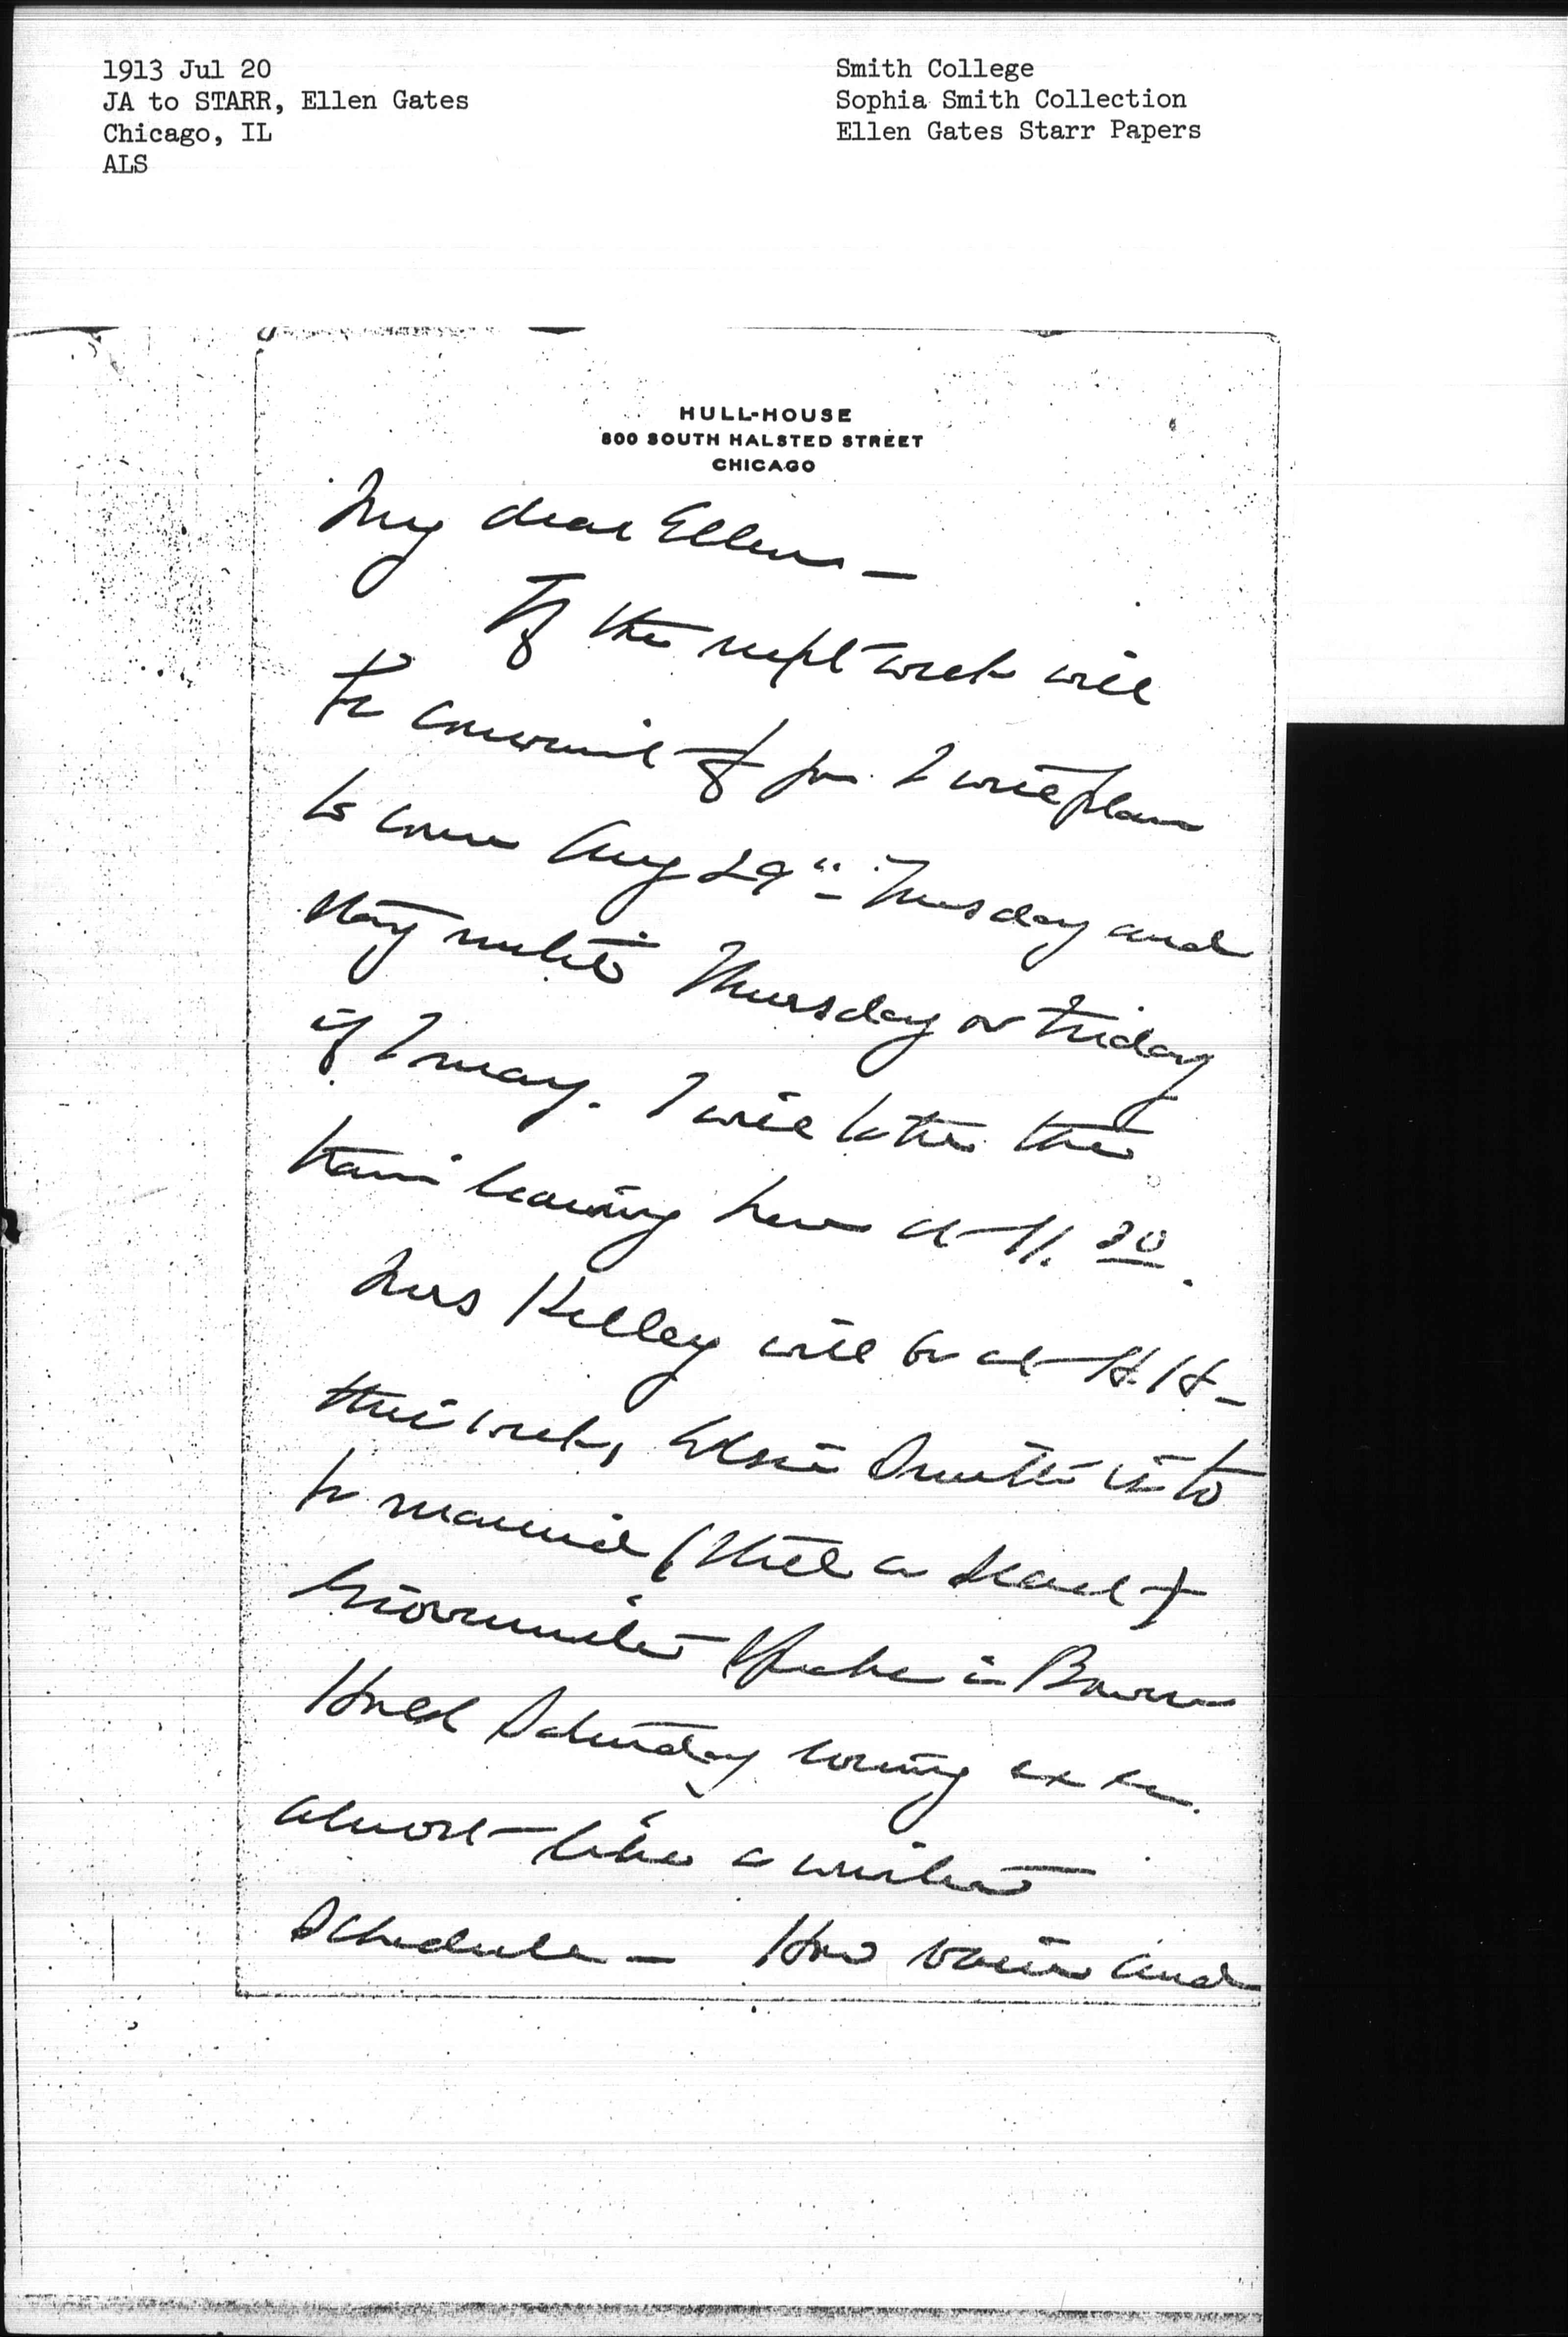 1913 Jul 20
JA to STARR, Ellen Gates
Chicago, IL
ALS
Smith College
Sophia Smith Collection
Ellen Gates Starr Papers
HULL-HOUSE
800 SOUTH HALSTED STREET
CHICAGO
My dear Ellen –
If the next week will
be convenient for you I will plan
to come Aug 29" – Tuesday and
stay until Thursday or Friday
if I may. I will take the
train leaving here at 11.30.
Mrs Kelley will be at H.H –
this week, Smith is to
be married (still a secret)
spoke in Bowen
Hall Saturday evening etc etc.
almost like a winter
schedule – How and